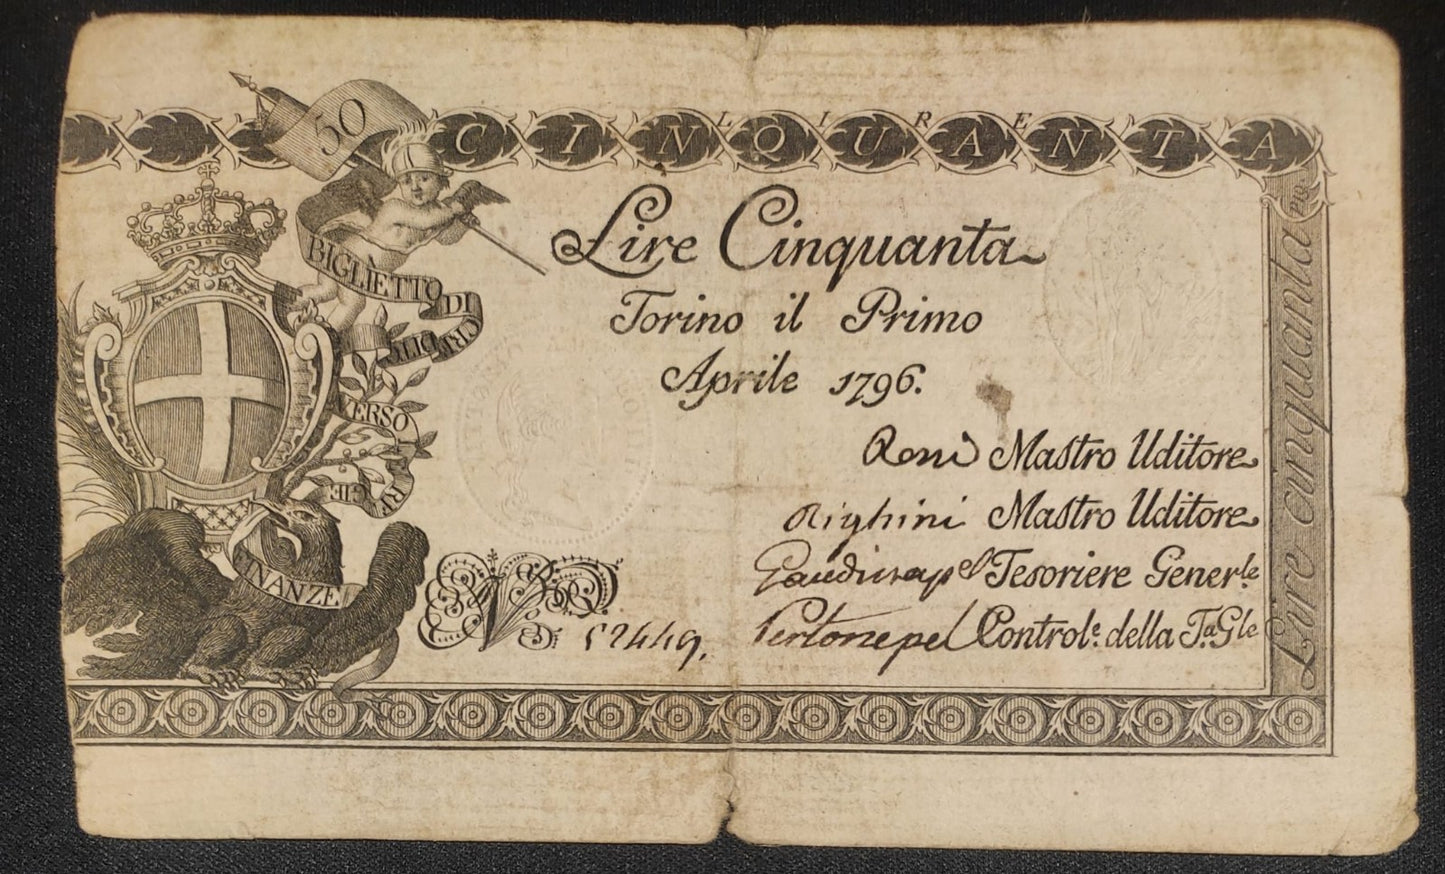 50
LIRE
CINQUANTA
BIGLIETTO DI CREDITO
VERSO
REGIE
FINANZE
Lire Cinquanta
Torino il Primo
Aprile 1796.
Mastro Uditore
Righini Mastro Uditore
Tesoriere Gener.le
Control.e della T.a G.le
N
Lire cinquanta